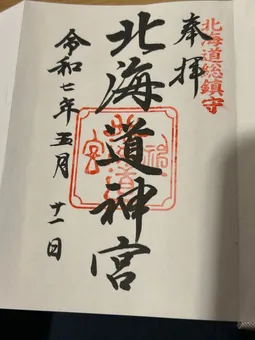 北海道総鎮守
奉拝
北海道神宮
令和七年五月廿一日